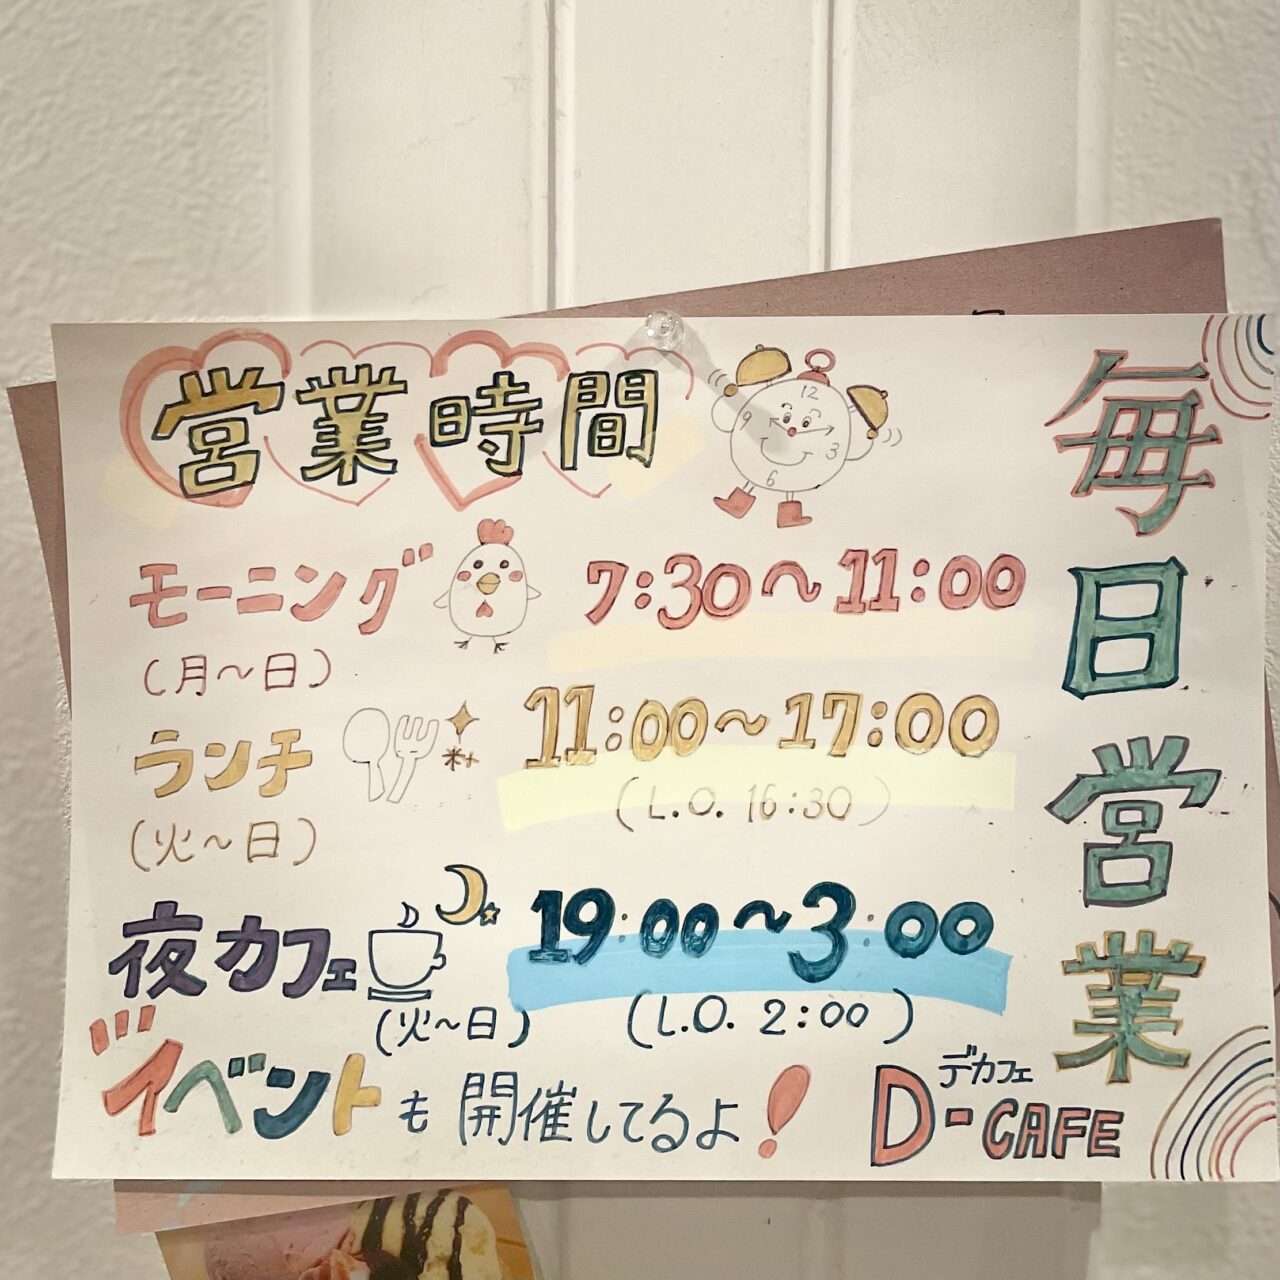 営業時間
12
3
6
9
モーニング 7:30〜11:00
(月〜日)
ランチ 11:00〜17:00
(火〜日) (L.O. 16:30)
夜カフェ 19:00〜3:00
(火〜日) (L.O. 2:00)
イベントも開催してるよ!
デカフェ
D-CAFE
毎日営業